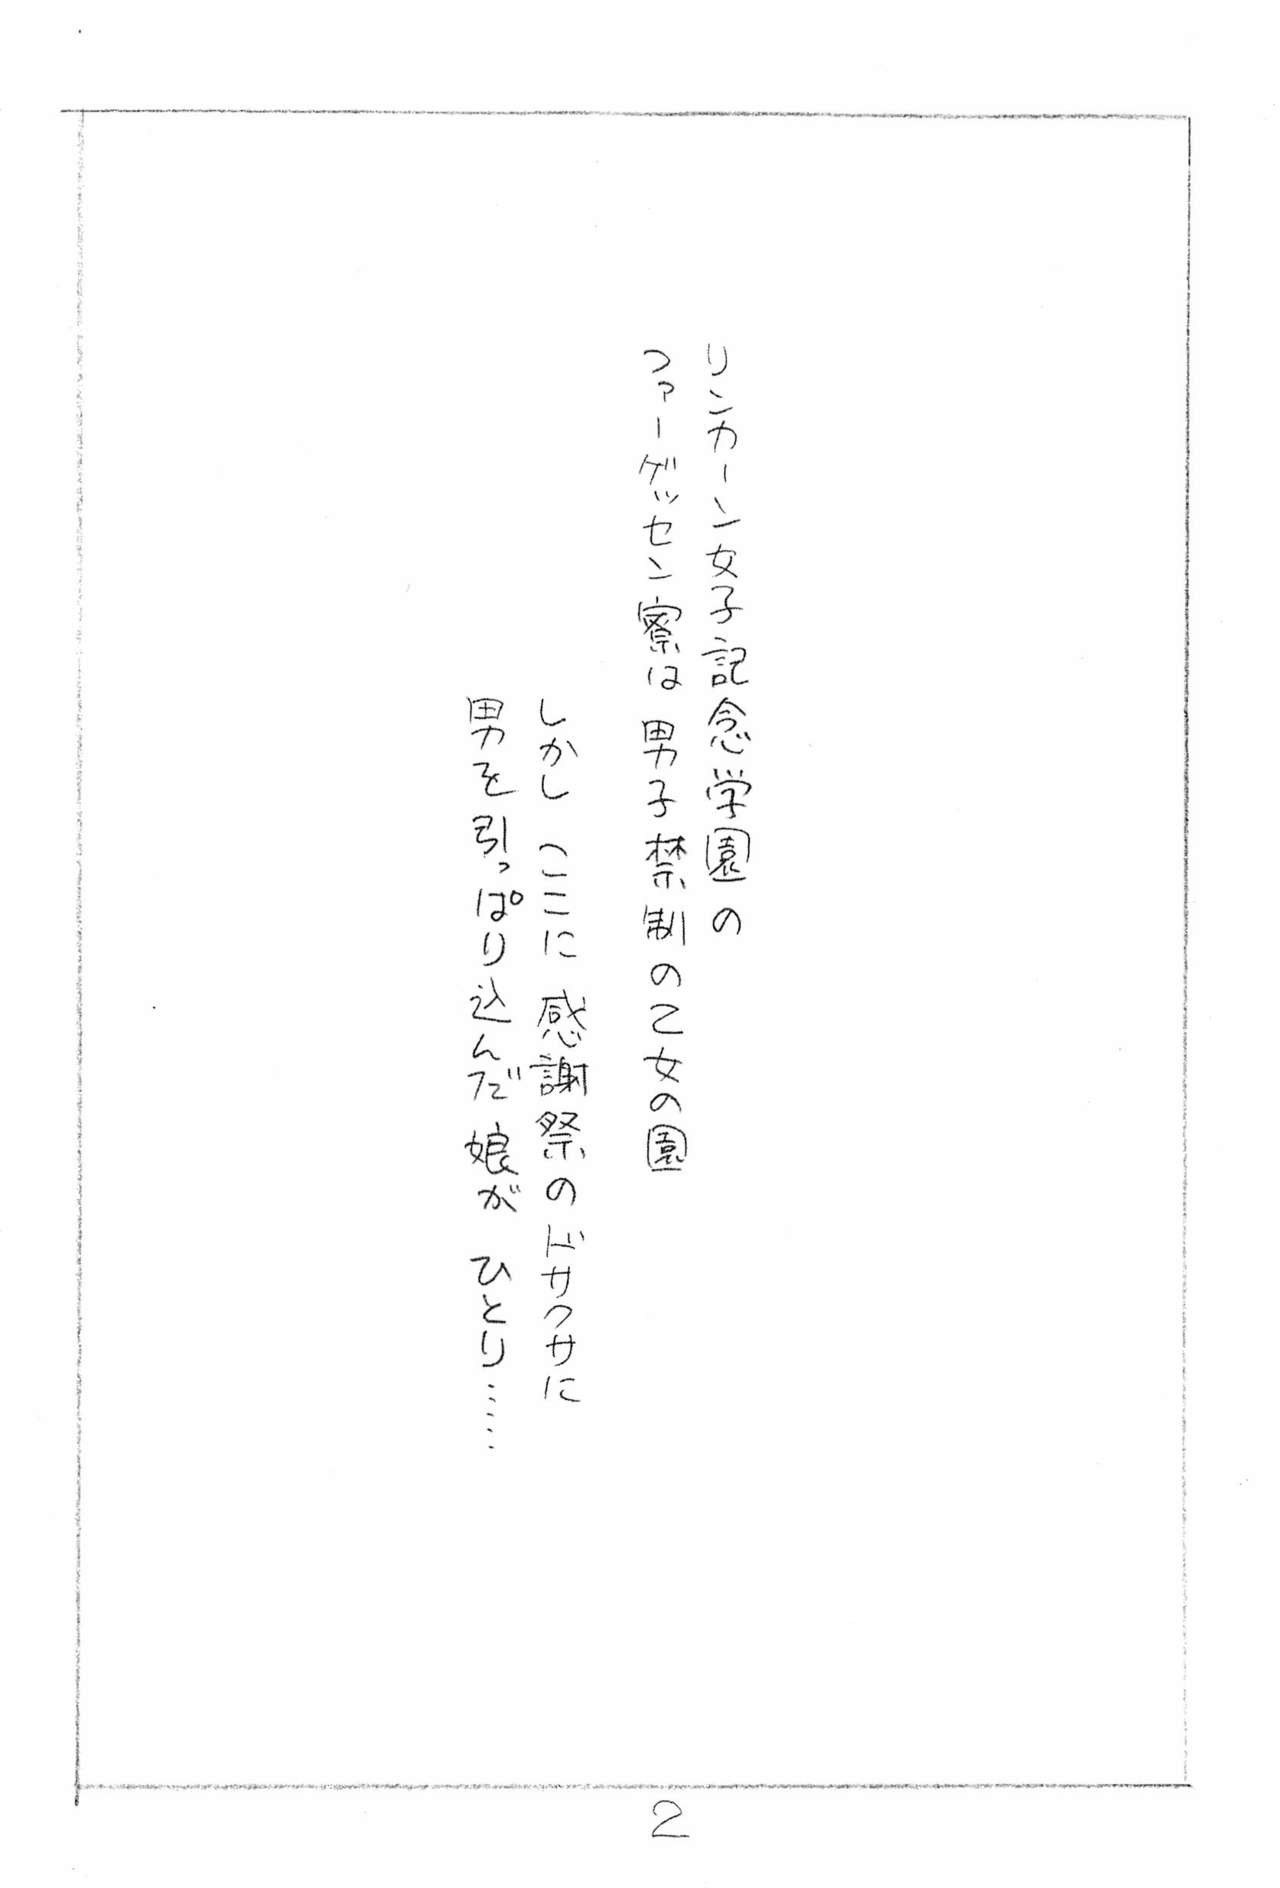 リンカーン女子記念学園の
ファーゲッセン寮は 男子禁制の乙女の園
しかし ここに 感謝祭のドサクサに
男を引っぱり込んだ娘が ひとり‥‥
2